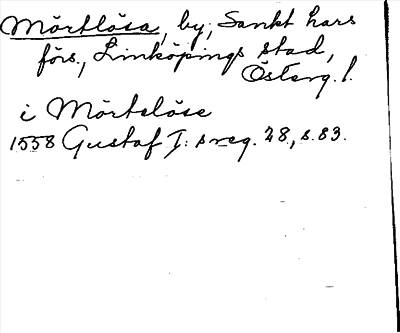 Mörtlösa, by, Sankt Lars
förs., Linköpings stad,
Österg. l.
i Mörtelöse
1558 Gustaf I: s reg. 28, s. 83.